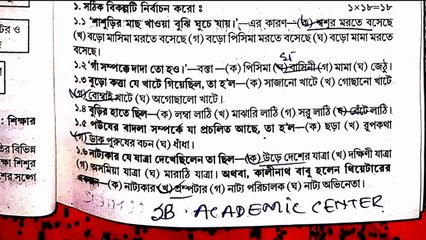 ১. সঠিক বিকল্পটি নির্বাচন করো : ১×১৮=১৮
১.১ 'শাশুড়ির মাছ খাওয়া বুঝি ঘুচে যায়।'–এর কারণ–(ক) শ্বশুর মরতে বসেছে
(খ) বড়ো মাসিমা মরতে বসেছে (গ) বড়ো পিসিমা মরতে বসেছে (ঘ) বড়ো মামা মরতে
বসেছে।
১.২ 'গাঁ সম্পর্কে দাদা তো হও।'– বক্তা —(ক) পিসিমা (খ) বাসিনী (গ) মামা (ঘ) জেঠু।
১.৩ বুড়ো কত্তা যে খাটে গিয়েছিল, তা হ'ল—(ক) সাজানো খাটে (খ) গোছালো খাটে
(গ) বোম্বাই খাটে (ঘ) অগোছালো খাটে।
১.৪ বুড়ির হাতে ছিল— (ক) লম্বা লাঠি (খ) মাঝারি লাঠি (গ) সরু লাঠি (ঘ) বেঁটে লাঠি।
১.৫ পউষের বাদলা সম্পর্কে যা প্রচলিত আছে, তা হ'ল— (ক) ছড়া (খ) রূপকথা
(গ) ডাক পুরুষের বচন (ঘ) ধাঁধা।
১.৬ নাট্যকার যে যাত্রা দেখেছিলেন তা ছিল—(ক) উড়ে দেশের যাত্রা (খ) দক্ষিণী যাত্রা
(গ) অসমিয়া যাত্রা (ঘ) মারাঠি যাত্রা। অথবা, কালীনাথ বাবু হলেন থিয়েটারের
(ক) নাট্যকার (খ) প্রম্পটার (গ) নাট্য পরিচালক (ঘ) নাট্য অভিনেতা।
SB ACADEMIC CENTER
টের ও
: শিক্ষার
তির বিভিন্ন
শিশুর